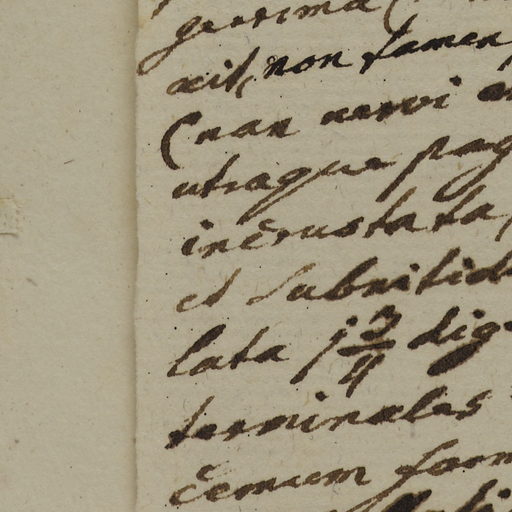 axit, non tamen
(nan nervi
utraque pag
incrustata,
et subnitid
lata j 3/4 dig
terminales
cemum form